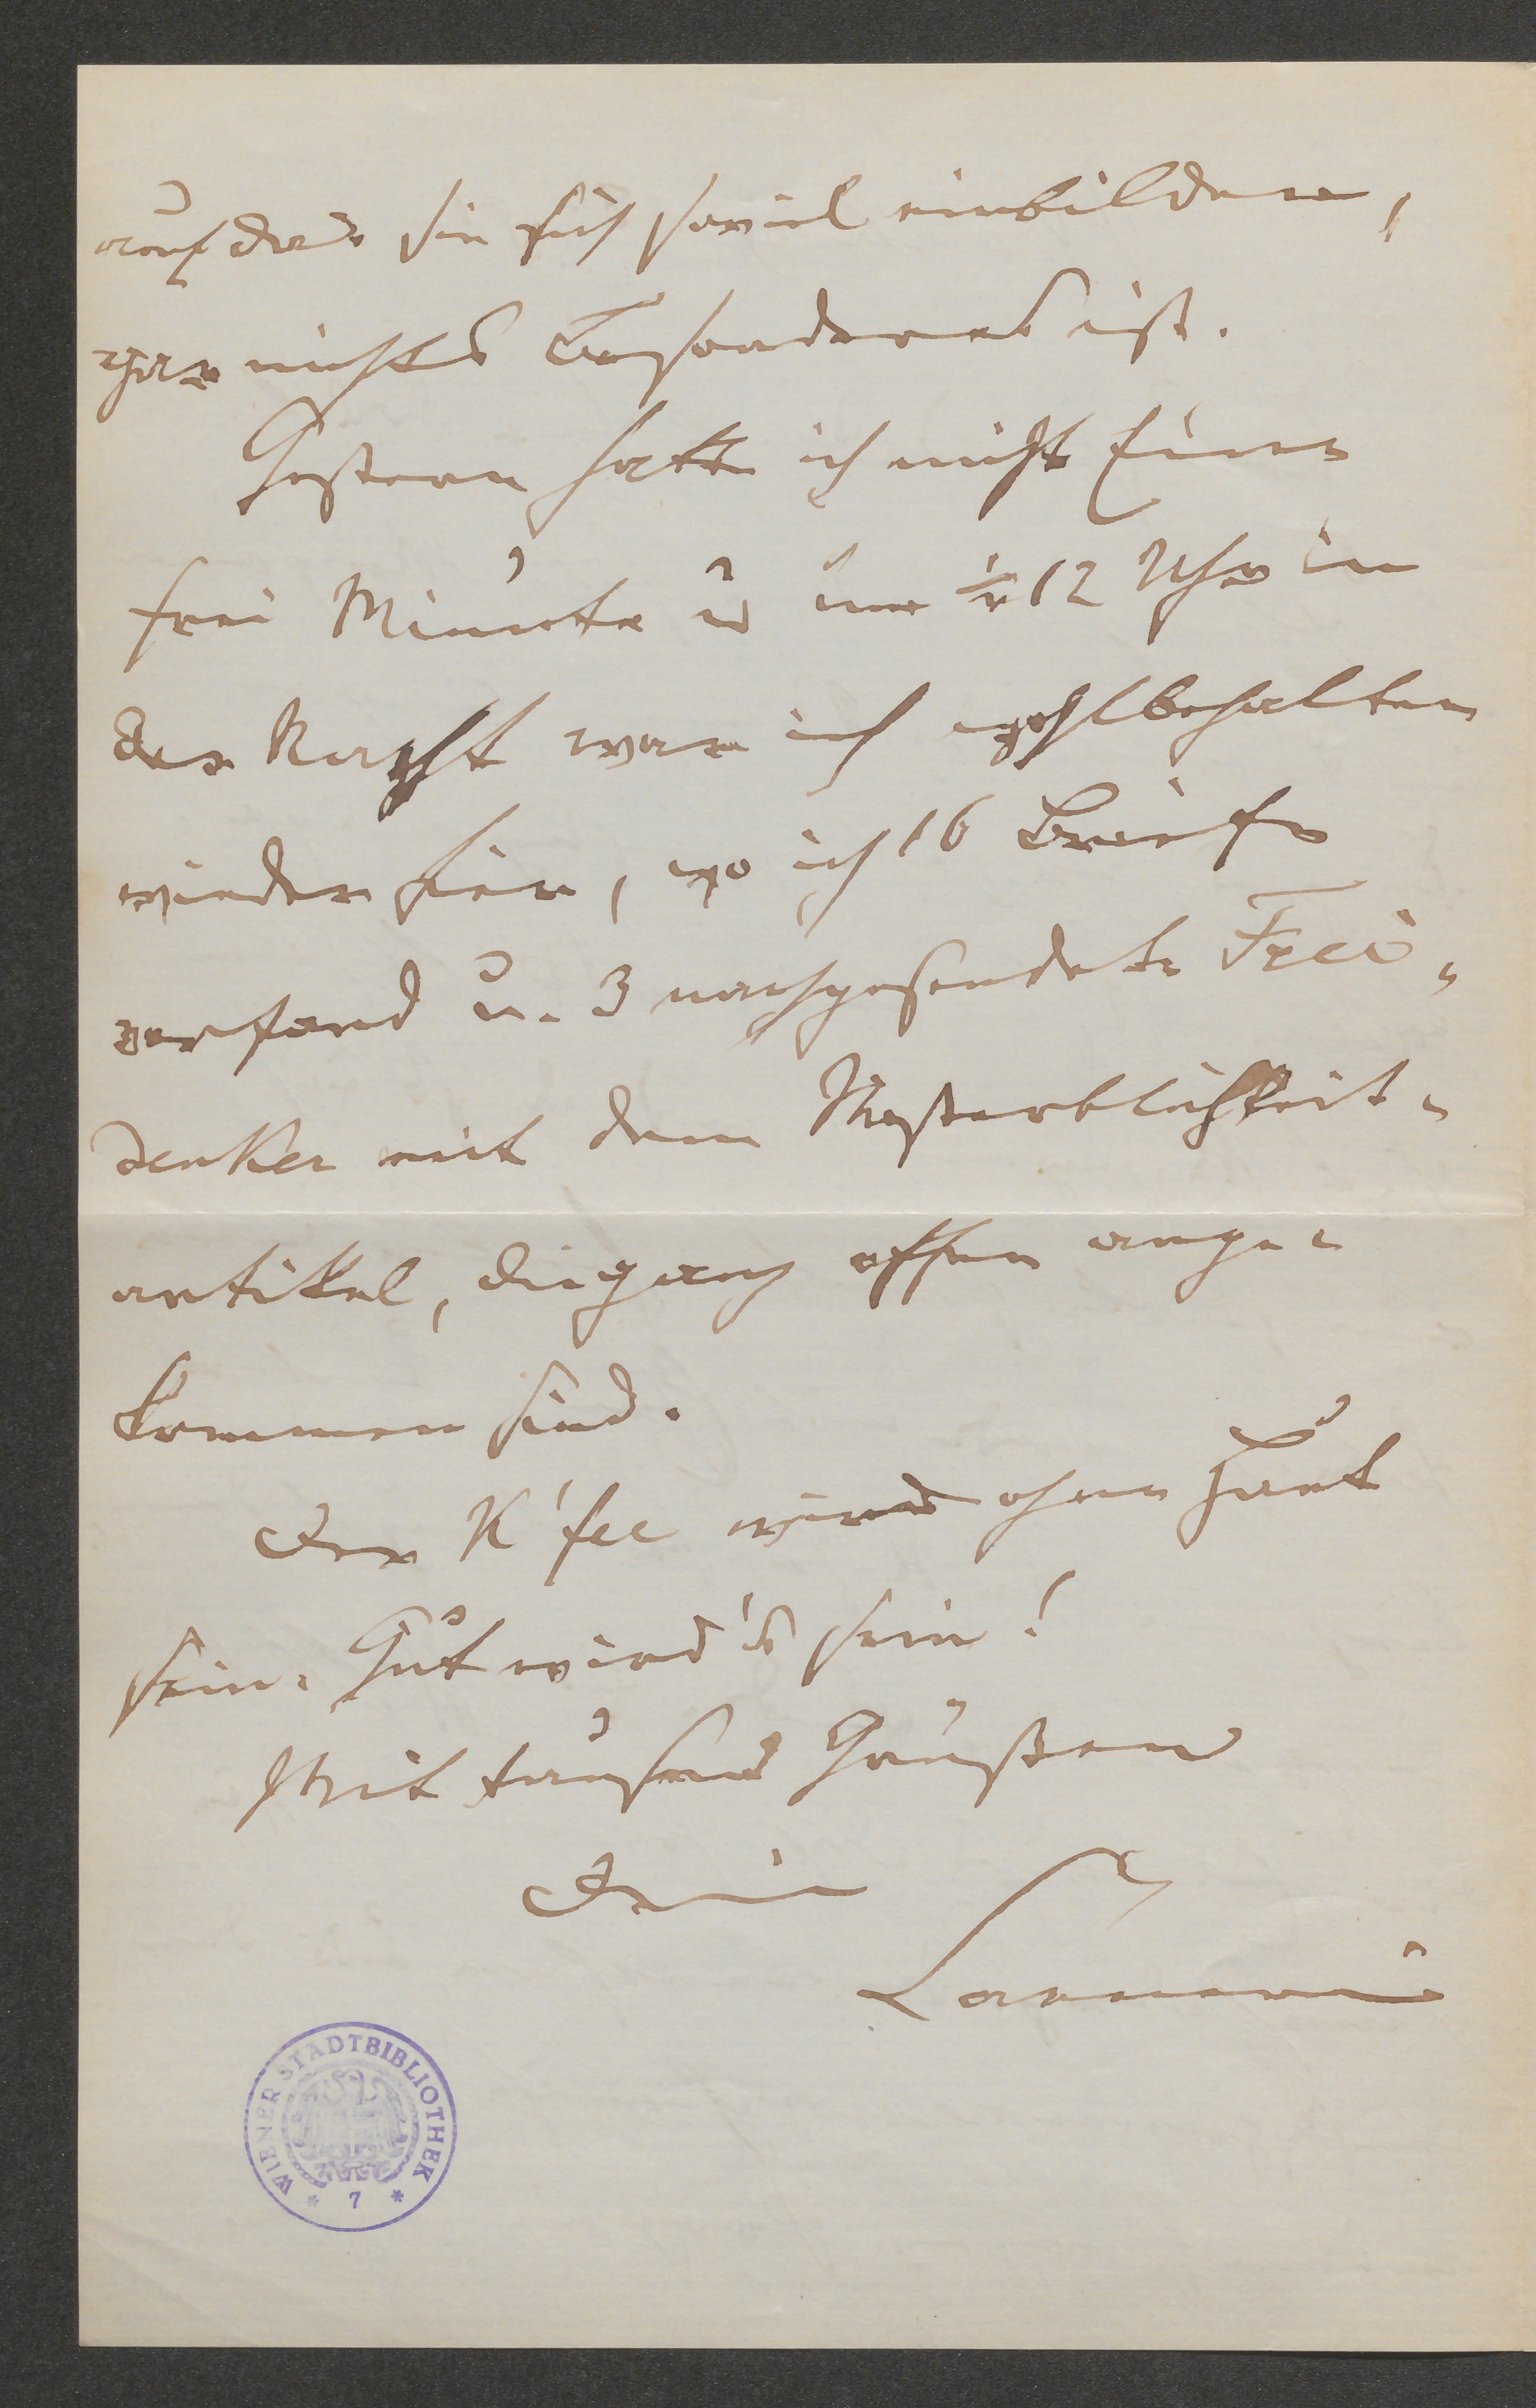 auf die sie sich soviel einbilden,
gar nichts Besonderes ist.
Gestern hatte ich nicht Eine
freie Minute u um ½ 12 Uhr in
der Nacht war ich wohlbehalten
wieder hier, wo ich 16 Briefe
vorfand u. 3 nachgesendete Frei-
denker mit dem Unsterblichkeit-
artikel, die ganz offen ange-
kommen sind.
Der K'fee wird ohne Haut
sein. Gut wird's sein!
Mit tausend Grüßen
Dein
WIENER STADTBIBLIOTHEK
* 7 *